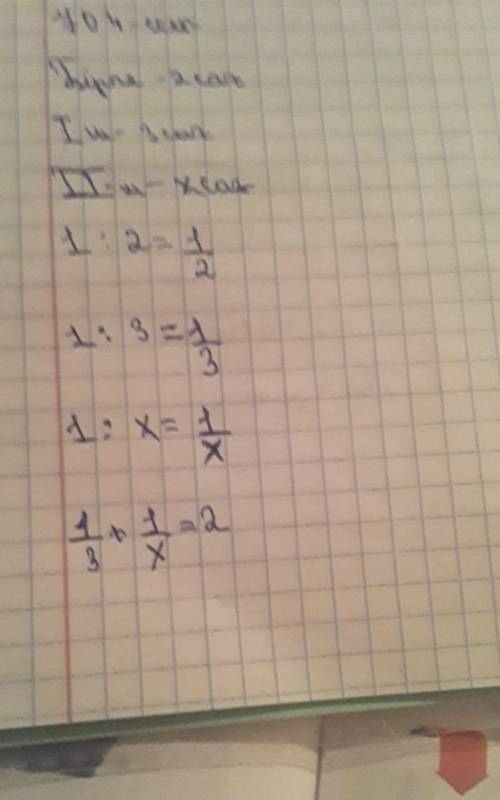 Бірге - 2 сағ
I м - 3 сағ
II - м - x сағ
1 : 2 = 1/2
1 : 3 = 1/3
1 : x = 1/x
1/3 + 1/x = 2